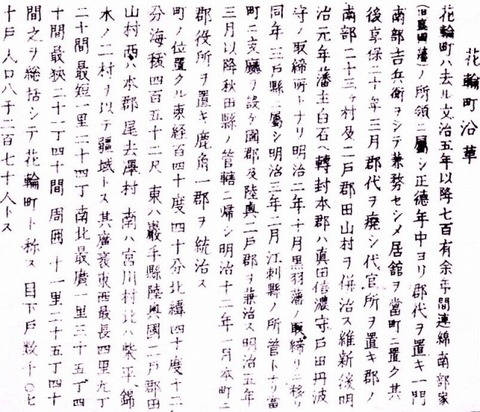 花輪町沿革
花輪町ハ去ル文治五年以降七百有余年間連綿南部家
(旧盛岡藩)ノ所領ニ属シ正徳年中ヨリ郡代ヲ置キ一門
南部吉兵衛ヲシテ兼務セシメ居館ヲ當町ニ置ク其
後享保二十年三月郡代ヲ廃シ代官所ヲ置キ郡ノ
南部二十三ヶ村及二戸郡田山村ヲ併治ス維新後明
治元年藩主白石ヘ轉封本郡ハ真田信濃守戸田丹波
守ノ取締所トナリ明治二年十月黒羽藩ノ取締リニ移リ
同年三戸縣ニ属シ同治三年二月江刺縣ノ所管トナリ當
町ニ支廳ヲ設ケ國郡及陸奥二戸郡ヲ兼治ス明治五年
三月以降秋田縣ノ管轄ニ帰シ明治十二年一月本町ニ
郡役所ヲ置キ鹿角一郡ヲ統治ス
町ノ位置タル東経百四十度四十分北緯四十度十二
分海抜四百五十二尺東ハ巌手縣陸奥國二戸郡田
山村西ハ本郡尾去澤村南ハ宮川村北ハ柴平、錦
木ノ二村ヲ以テ疆域トス其廣袤東西最長四里九丁
二十間最短一里二十四丁南北最廣一里三十五丁四
十間最狭二十二丁四十間周囲十一里二十五丁四十
間之ヲ総括シテ花輪町ト称ス目下戸数千〇七
十戸人口八千二百七十人トス